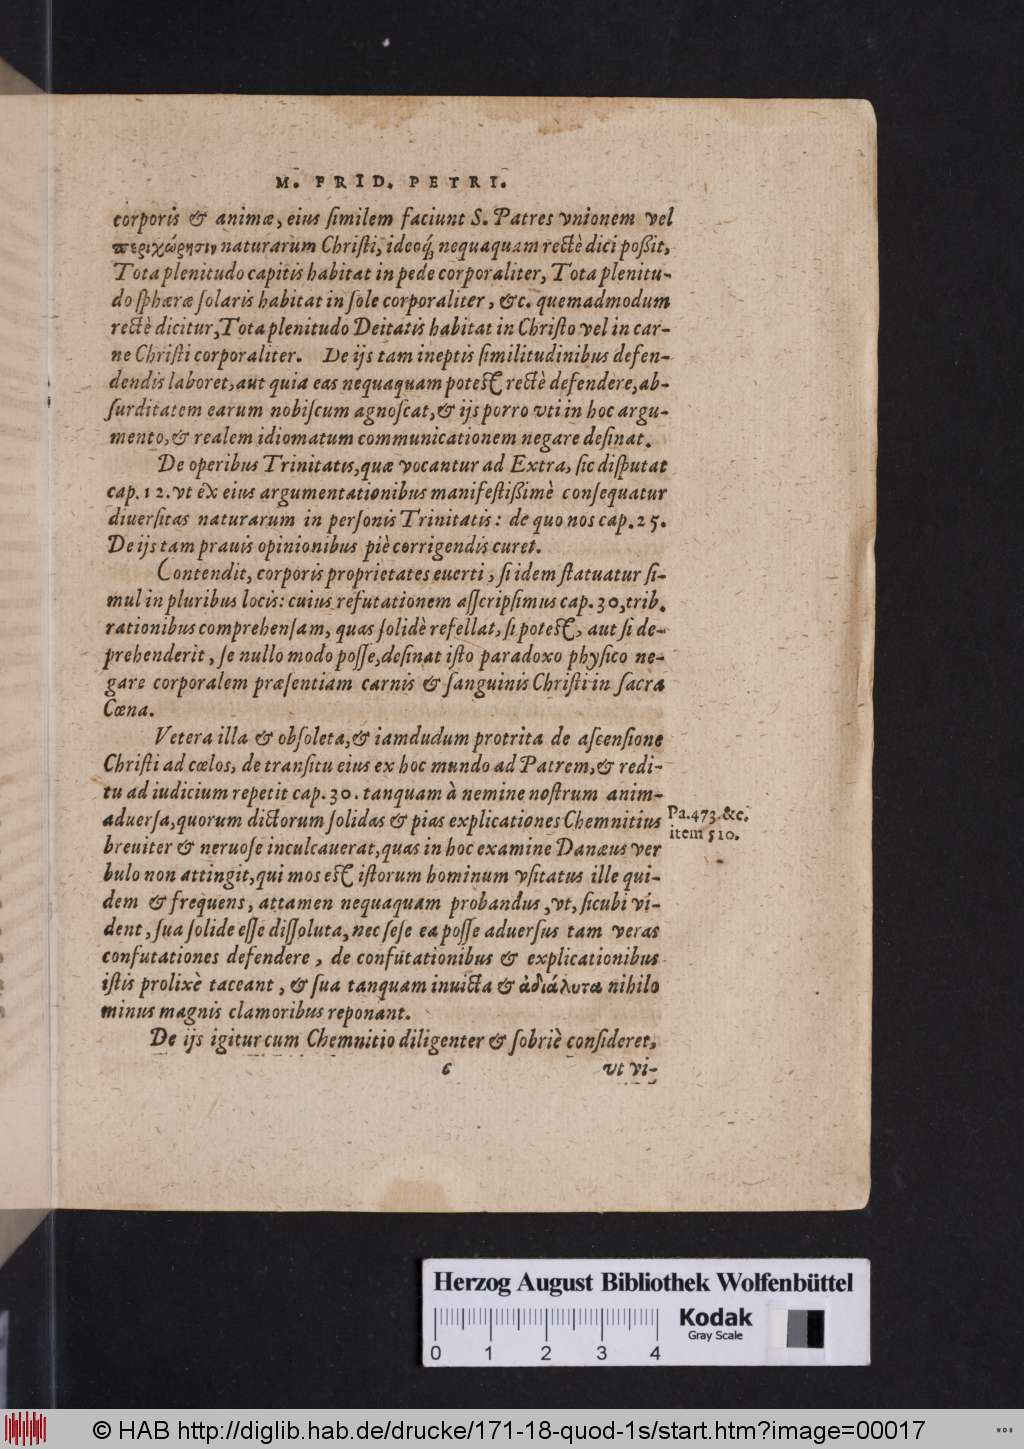 M. FRID. PETRI.
corporis & animæ, eius ſimilem faciunt S. Patres vnionem vel
περιχώρησιν naturarum Chriſti, ideoq́; nequaquam rectè dici poßit,
Tota plenitudo capitis habitat in pede corporaliter, Tota plenitu-
do ſphæræ ſolaris habitat in ſole corporaliter, &c. quemadmodum
rectè dicitur, Tota plenitudo Deitatis habitat in Chriſto vel in car-
ne Chriſti corporaliter. De ijs tam ineptis ſimilitudinibus defen-
dendis laboret, aut quia eas nequaquam poteſt rectè defendere, ab-
ſurditatem earum nobiſcum agnoſcat, & ijs porro vti in hoc argu-
mento, & realem idiomatum communicationem negare deſinat.
De operibus Trinitatis, quæ vocantur ad Extra, ſic diſputat
cap. 12. vt ex eius argumentationibus manifeſtißimè conſequatur
diuerſitas naturarum in perſonis Trinitatis: de quo nos cap. 25.
De ijs tam prauis opinionibus piè corrigendis curet.
Contendit, corporis proprietates euerti, ſi idem ſtatuatur ſi-
mul in pluribus locis: cuius refutationem aſſcripſimus cap. 30, trib.
rationibus comprehenſam, quas ſolidè refellat, ſi poteſt, aut ſi de-
prehenderit, ſe nullo modo poſſe, deſinat iſto paradoxo phyſico ne-
gare corporalem præſentiam carnis & ſanguinis Chriſti in ſacra
Cœna.
Vetera illa & obſoleta, & iamdudum protrita de aſcenſione
Chriſti ad cœlos, de tranſitu eius ex hoc mundo ad Patrem, & redi-
tu ad iudicium repetit cap. 30. tanquam à nemine noſtrum anim-
aduerſa, quorum dictorum ſolidas & pias explicationes Chemnitius
Pa. 473. &c.
item 510.
breuiter & neruoſe inculcauerat, quas in hoc examine Danæus ver
bulo non attingit, qui mos eſt iſtorum hominum vſitatus ille qui-
dem & frequens, attamen nequaquam probandus, vt, ſicubi vi-
dent, ſua ſolide eſſe diſſoluta, nec ſeſe ea poſſe aduerſus tam veras
confutationes defendere, de confutationibus & explicationibus
iſtis prolixè taceant, & ſua tanquam inuicta & ἀδιάλυτα nihilo
minus magnis clamoribus reponant.
De ijs igitur cum Chemnitio diligenter & ſobriè conſideret,
c
vt vi-
Herzog August Bibliothek Wolfenbüttel
Kodak
Gray Scale
0 1 2 3 4
© HAB http://diglib.hab.de/drucke/171-18-quod-1s/start.htm?image=00017